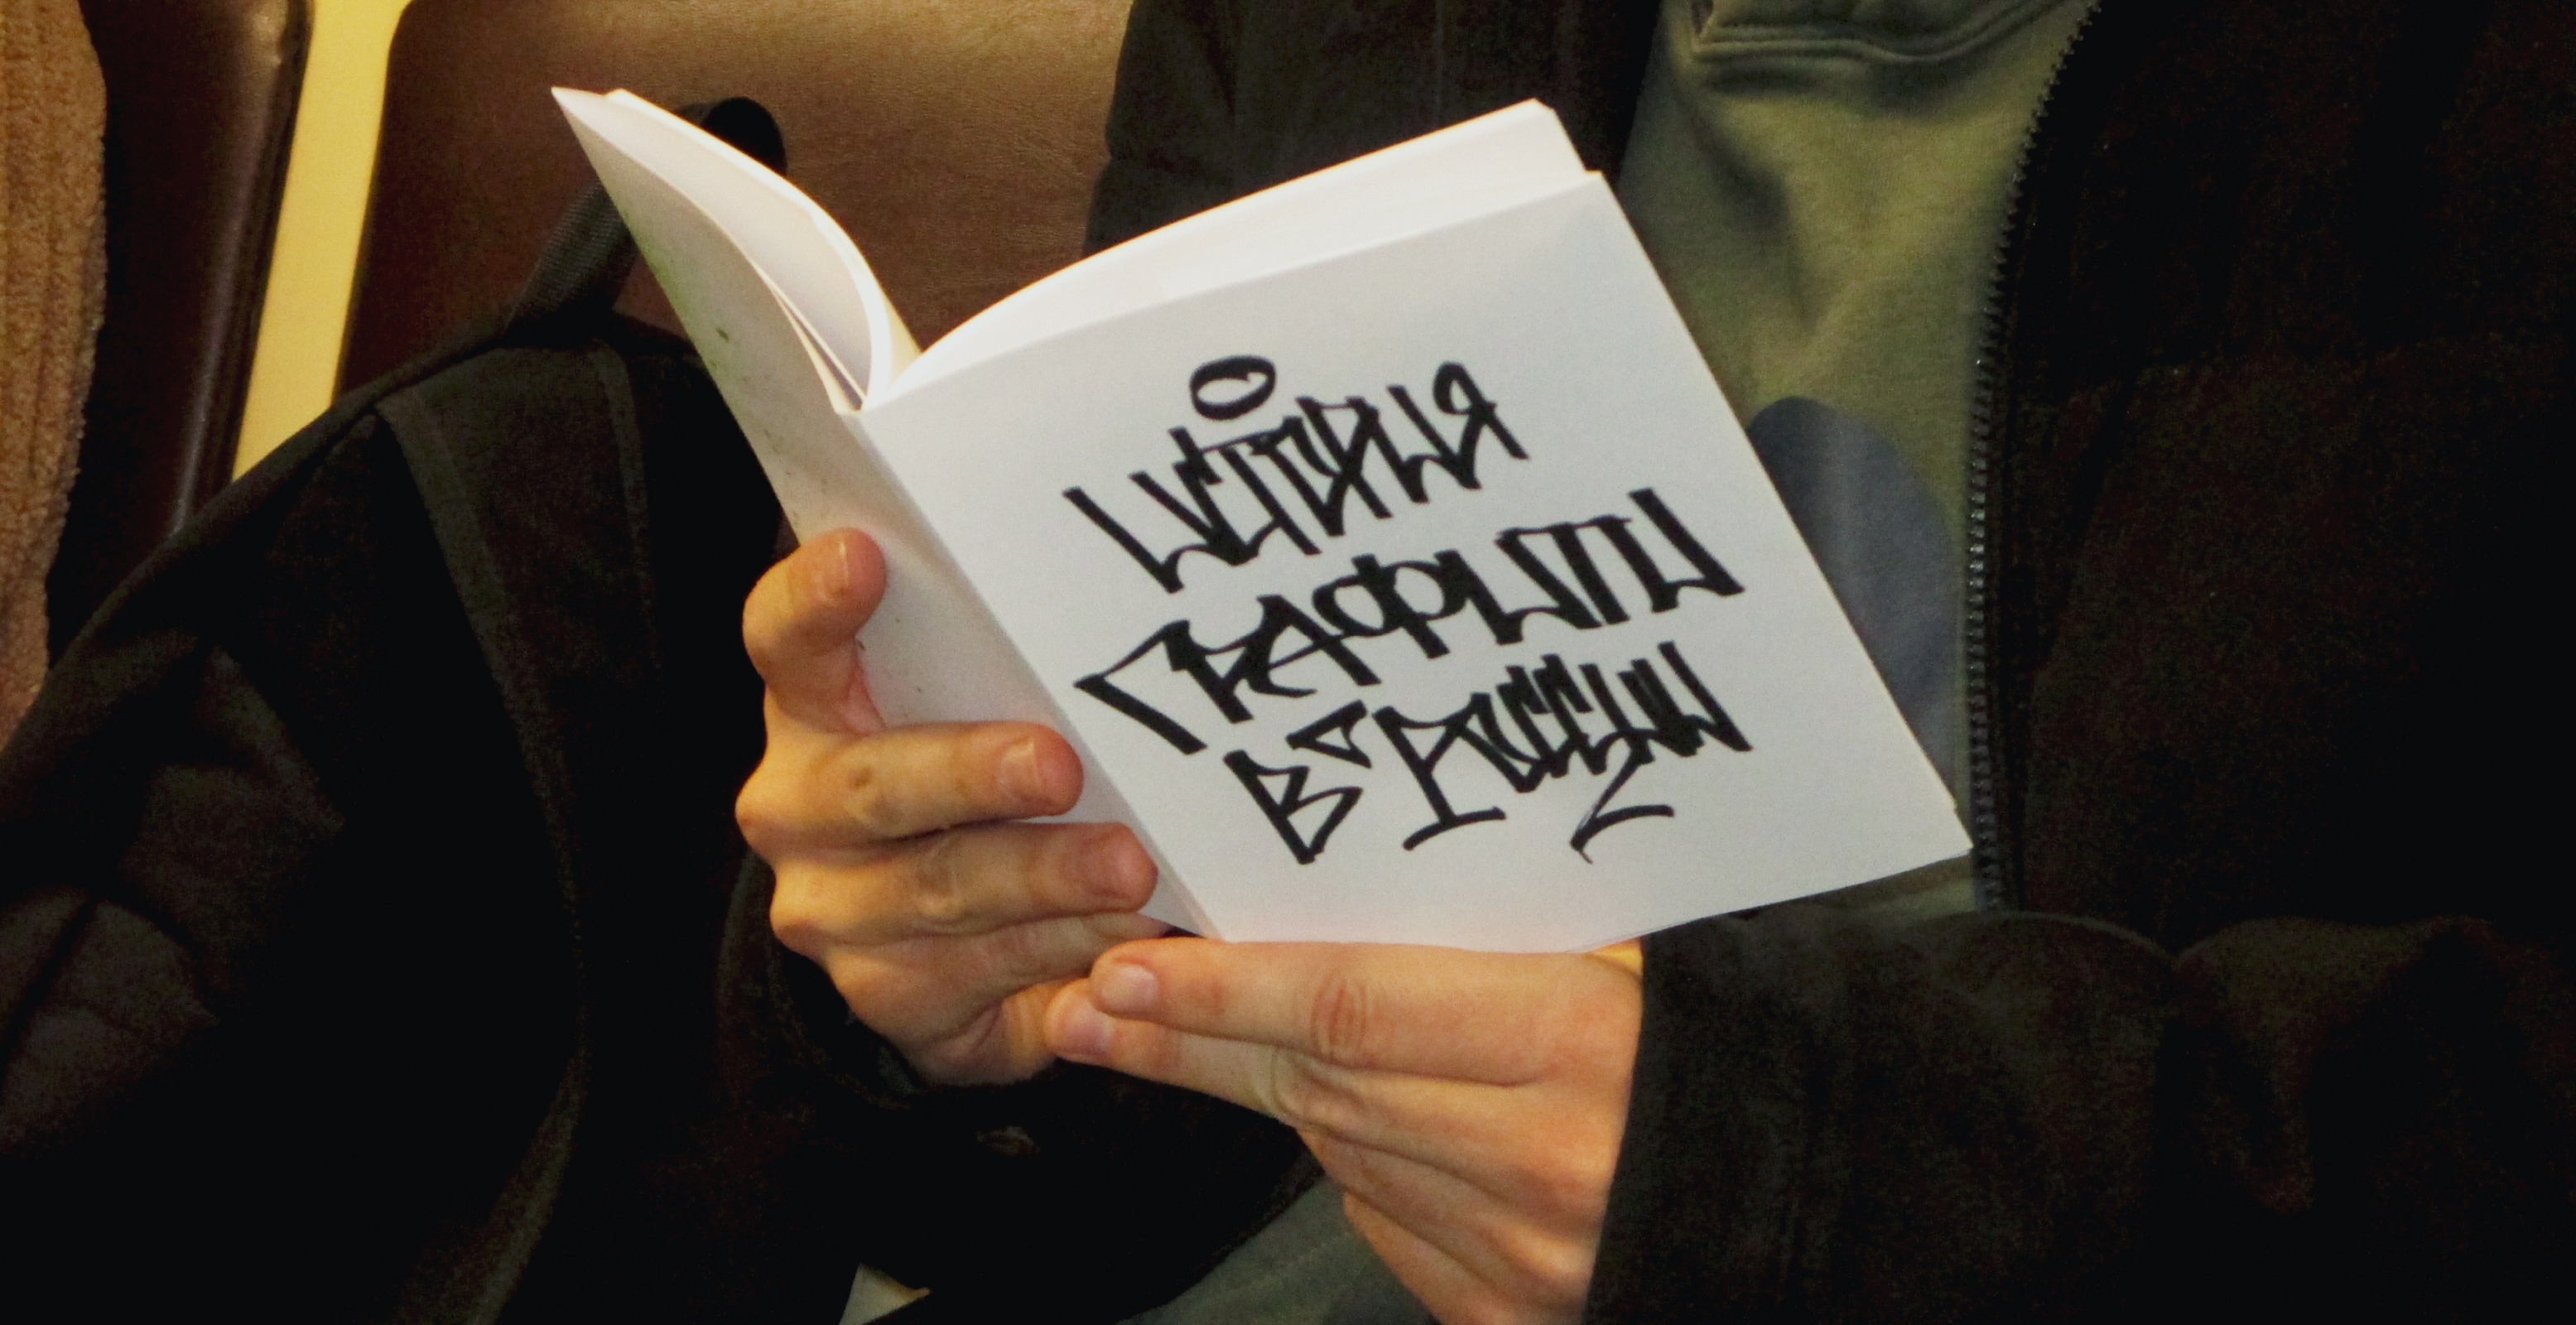 история
графити
в России
2